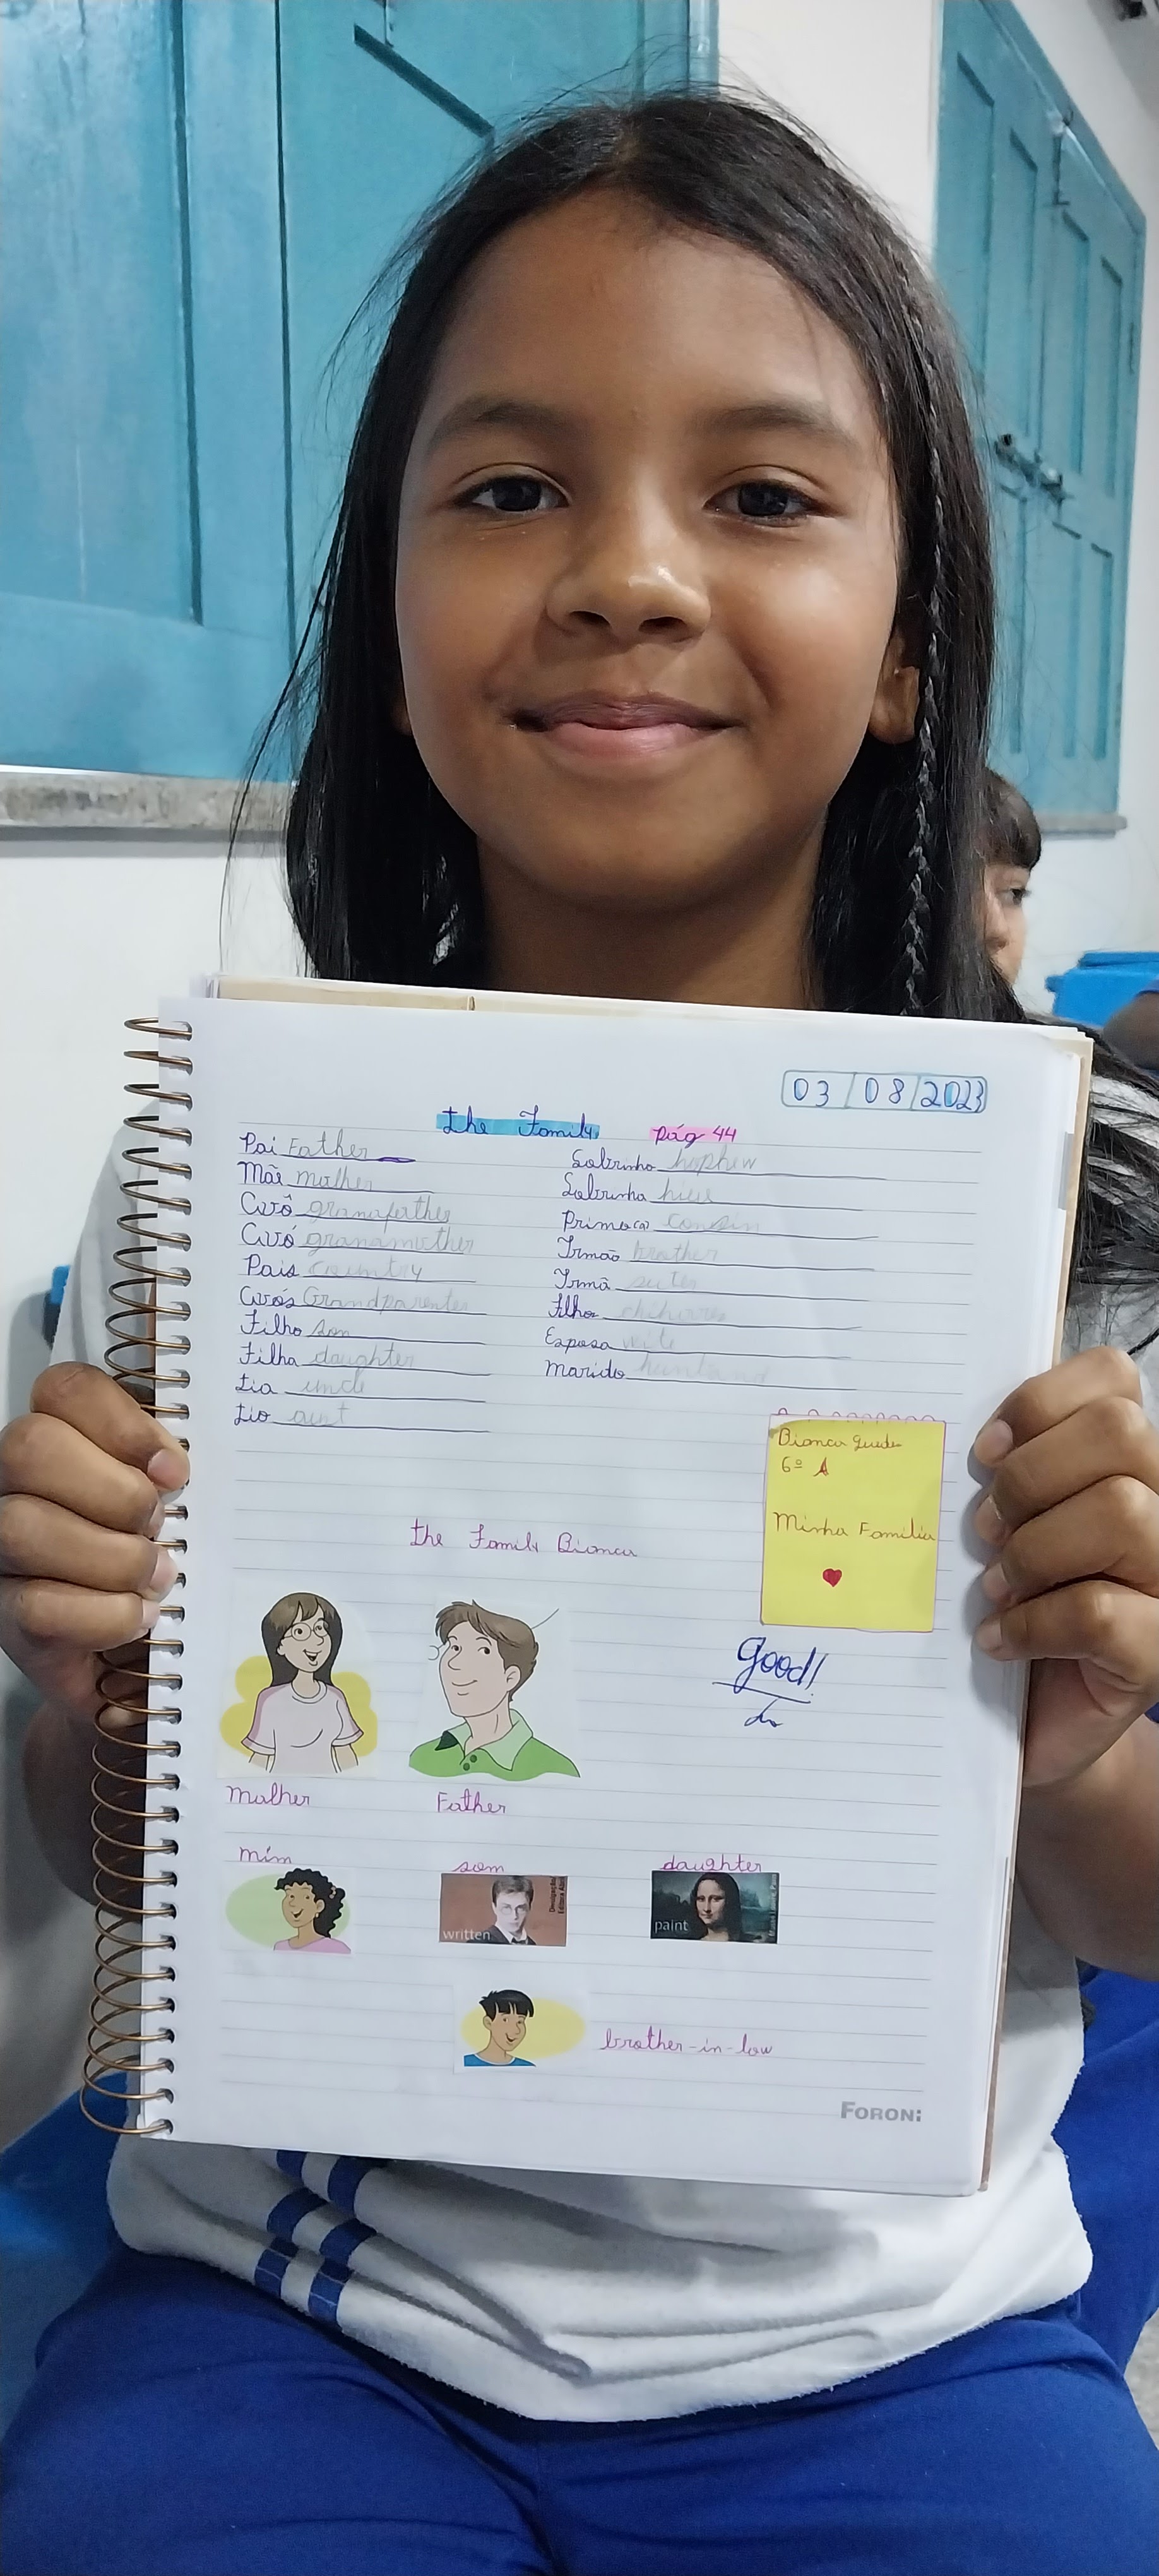 03/08/2023
The Family pág 44
Pai Father
Mãe mother
Avô granaferther
Avó granamother
Pais country
Avós Grandparentes
Filho son
Filha daughter
tia uncle
tio aunt
Sobrinho hephew
Sobrinha
Primo(a) consin
Irmão brother
Irmã
Filhos
Esposa
Marido
Bianca Guedes
6º A
Minha Familia
the Family Bianca
good!
Mother Father
mim som daughter
written paint
brother-in-low
FORONI